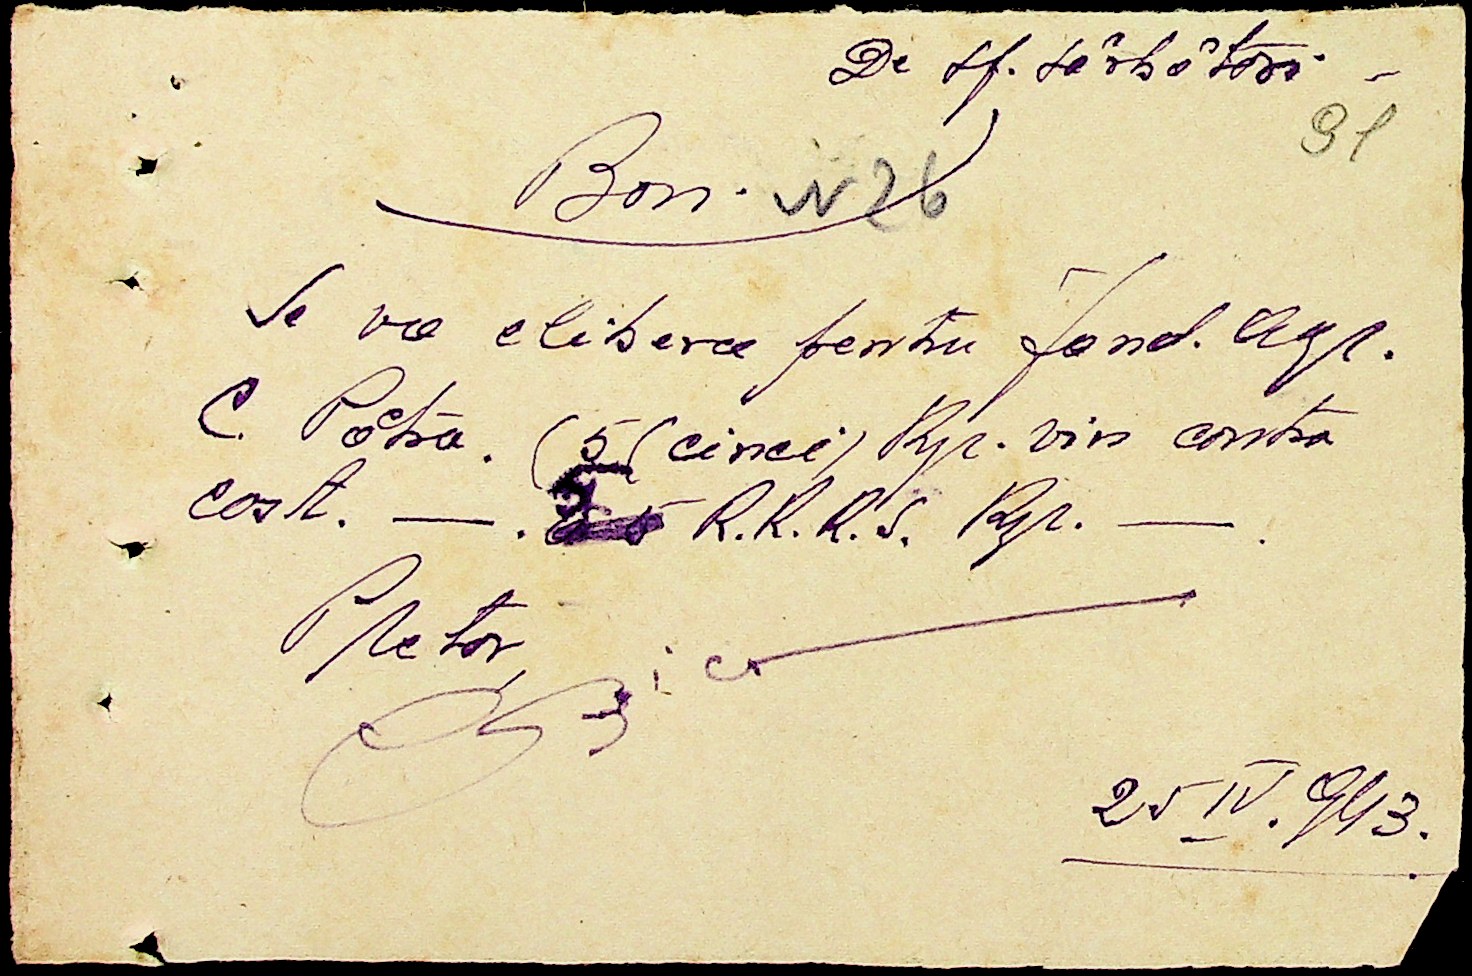 De sf. sărbători -
91
Bon. N 26
Se va elibera pentru Jand. Agr.
C. Pătra. (5 (cinci) Kgr. vin contra
cost. — . R.R.R.S. Kgr. — .
Pretor,
25 IV. 943.